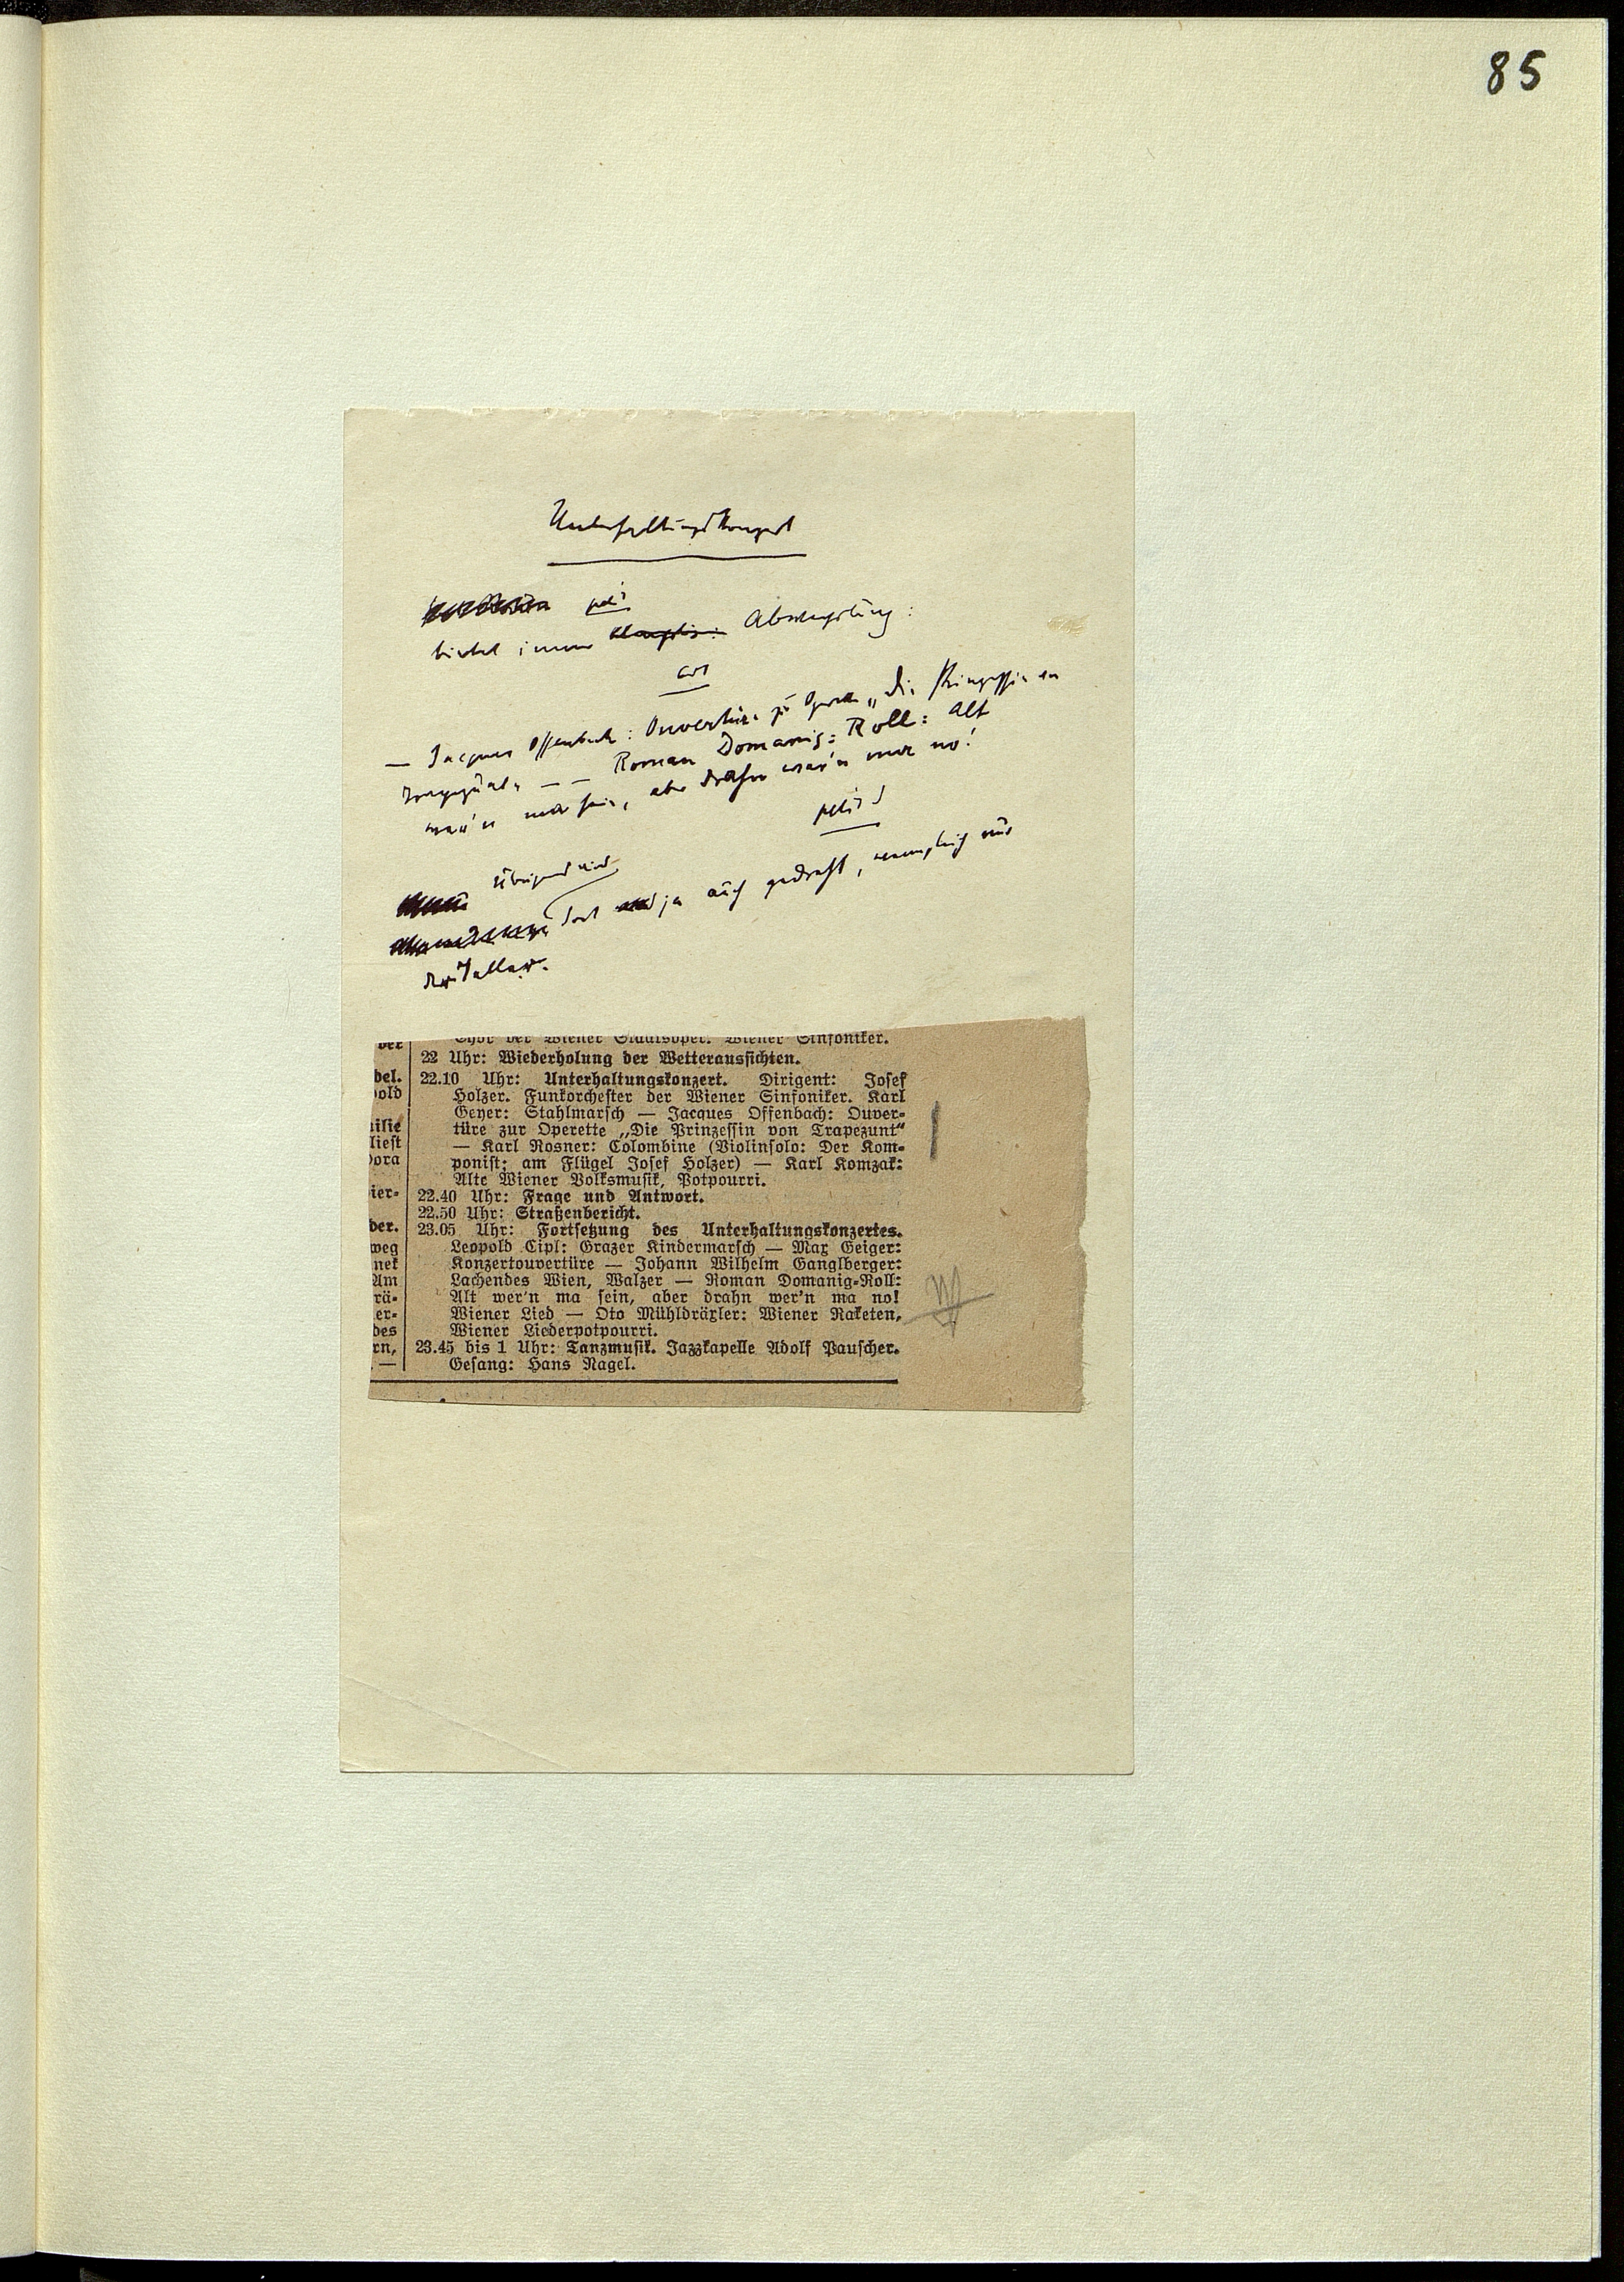 85
Unterhaltungskonzert
petit
bietet immer Abwechslung:
cors
— Jacques Offenbach: Ouvertüre zur Operette „Die Prinzessin von
Trapezunt“ — — Roman Domanig-Roll: Alt
wer'n ma sein, aber drahn wer'n ma no!
petit
Übrigens wird
dort ja auch gedraht, wenngleich nur
der
ver
Chor der Wiener Staatsoper. Wiener Sinfoniker.
22 Uhr: Wiederholung der Wetteraussichten.
del.
22.10 Uhr: Unterhaltungskonzert. Dirigent: Josef
pold
Holzer. Funkorchester der Wiener Sinfoniker. Karl
Geyer: Stahlmarsch — Jacques Offenbach: Ouver-
ilie
türe zur Operette „Die Prinzessin von Trapezunt“
liest
— Karl Rosner: Colombine (Violinsolo: Der Kom-
Dora
ponist; am Flügel Josef Holzer) — Karl Komzak:
Alte Wiener Volksmusik, Potpourri.
ier-
22.40 Uhr: Frage und Antwort.
22.50 Uhr: Straßenbericht.
der.
23.05 Uhr: Fortsetzung des Unterhaltungskonzertes.
weg
Leopold Cipl: Grazer Kindermarsch — Max Geiger:
nek
Konzertouvertüre — Johann Wilhelm Ganglberger:
Am
Lachendes Wien, Walzer — Roman Domanig-Roll:
rä-
Alt wer'n ma sein, aber drahn wer'n ma no!
er-
Wiener Lied — Oto Mühldräxler: Wiener Raketen,
des
Wiener Liederpotpourri.
rn,
23.45 bis 1 Uhr: Tanzmusik. Jazzkapelle Adolf Pauscher.
. —
Gesang: Hans Nagel.